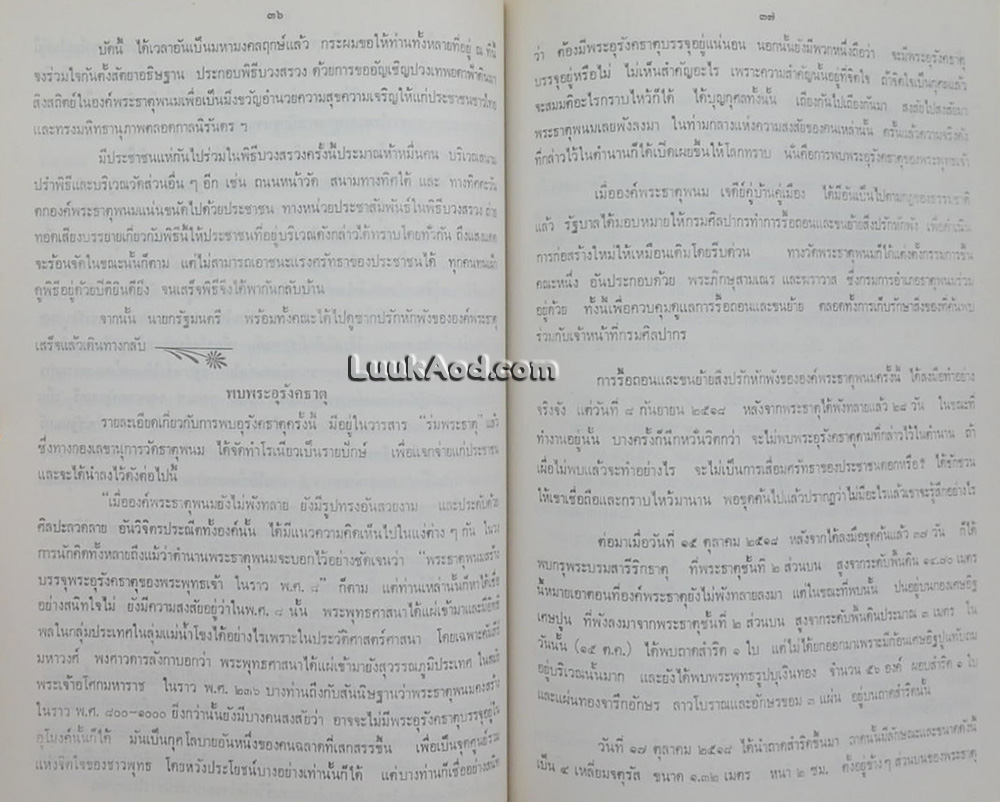 ๓๖
บัดนี้ ได้เวลาอันเป็นมหามงคลฤกษ์แล้ว กระผมขอให้ท่านทั้งหลายที่อยู่ ณ ที่นี้
จงร่วมใจกันตั้งสัตยาธิษฐาน ประกอบพิธีบวงสรวง ด้วยการขออัญเชิญปวงเทพยดาฟ้าดินมา
สิงสถิตย์ในองค์พระธาตุพนมเพื่อเป็นมิ่งขวัญอำนวยความสุขความเจริญให้แก่ประชาชนชาวไทย
และทรงมหิทธานุภาพตลอดกาลนิรันดร ฯ
มีประชาชนแห่กันไปร่วมในพิธีบวงสรวงครั้งนี้ประมาณห้าหมื่นคน บริเวณสนาม
ปรำพิธีและบริเวณวัดส่วนอื่น ๆ อีก เช่น ถนนหน้าวัด สนามทางทิศใต้ และ ทางทิศตะวัน
ตกองค์พระธาตุพนมแน่นขนัดไปด้วยประชาชน ทางหน่วยประชาสัมพันธ์ในพิธีบวงสรวง ถ่าย
ทอดเสียงบรรยายเกี่ยวกับพิธีนี้ให้ประชาชนที่อยู่บริเวณดังกล่าวได้ทราบโดยทั่วกัน ถึงแสงแดด
จะร้อนจัดในขณะนั้นก็ตาม แต่ไม่สามารถเอาชนะแรงศรัทธาของประชาชนได้ ทุกคนทนเฝ้า
ดูพิธีอยู่ด้วยปีติยินดียิ่ง จนเสร็จพิธีจึงได้พากันกลับบ้าน
จากนั้น นายกรัฐมนตรี พร้อมทั้งคณะได้ไปดูซากปรักหักพังขององค์พระธาตุ
เสร็จแล้วเดินทางกลับ
พบพระอุรังคธาตุ
รายละเอียดเกี่ยวกับการพบอุรังคธาตุครั้งนี้ มีอยู่ในวารสาร "ร่มพระธาตุ" แล้ว
ซึ่งทางกองเลขานุการวัดธาตุพนม ได้จัดทำโรเนียวเป็นรายปักษ์ เพื่อแจกจ่ายแก่ประชาชน
และจะได้นำลงไว้ดังต่อไปนี้
"เมื่อองค์พระธาตุพนมยังไม่พังทลาย ยังมีรูปทรงอันสวยงาม และประดับด้วย
ศิลปะลวดลาย อันวิจิตรประณีตทั้งองค์นั้น ได้มีแนวความคิดเห็นไปในแง่ต่าง ๆ กัน ในวง
การนักคิดทั้งหลายถึงแม้ว่าตำนานพระธาตุพนมจะบอกไว้อย่างชัดเจนว่า "พระธาตุพนมสร้าง
บรรจุพระอุรังคธาตุของพระพุทธเจ้า ในราว พ.ศ. ๘" ก็ตาม แต่ท่านเหล่านั้นก็หาได้เชื่อ
อย่างสนิทใจไม่ ยังมีความสงสัยอยู่ว่าใน พ.ศ. ๘ นั้น พระพุทธศาสนาได้แผ่เข้ามาและมีอิทธิ
พลในกลุ่มประเทศในลุ่มแม่น้ำโขงได้อย่างไรเพราะในประวัติศาสตร์ศาสนา โดยเฉพาะคัมภีร์
มหาวงศ์ พงศาวดารลังกาบอกว่า พระพุทธศาสนาได้แผ่เข้ามายังสุวรรณภูมิประเทศ ในสมัย
พระเจ้าอโศกมหาราช ในราว พ.ศ. ๒๓๖ บางท่านถึงกับสันนิษฐานว่าพระธาตุพนมคงสร้าง
ในราว พ.ศ. ๘๐๐–๑๐๐๐ ยิ่งกว่านั้นยังมีบางคนสงสัยว่า อาจจะไม่มีพระอุรังคธาตุบรรจุอยู่ใน
อุโมงค์นั้นก็ได้ มันเป็นกุศโลบายอันหนึ่งของคนฉลาดที่เสกสรรขึ้น เพื่อเป็นจุดศูนย์รวม
แห่งจิตใจของชาวพุทธ โดยหวังประโยชน์บางอย่างเท่านั้นก็ได้ แต่บางท่านก็เชื่ออย่างสนิท
๓๗
ว่า ต้องมีพระอุรังคธาตุบรรจุอยู่แน่นอน นอกนั้นยังมีพวกหนึ่งถือว่า จะมีพระอุรังคธาตุ
บรรจุอยู่หรือไม่ ไม่เห็นสำคัญอะไร เพราะความสำคัญนั้นอยู่ที่จิตใจ ถ้าจิตใจเป็นกุศลแล้ว
จะสมมติอะไรกราบไหว้ก็ได้ ได้บุญกุศลทั้งนั้น เถียงกันไปเถียงกันมา สงสัยไปสงสัยมา
พระธาตุพนมเลยพังลงมา ในท่ามกลางแห่งความสงสัยของคนเหล่านั้น ครั้นแล้วความจริงดัง
ที่กล่าวไว้ในตำนานก็ได้เปิดเผยขึ้นให้โลกทราบ นั่นคือการพบพระอุรังคธาตุของพระพุทธเจ้า
เมื่อองค์พระธาตุพนม เจดีย์คู่บ้านคู่เมือง ได้มีอันเป็นไปตามกฎของธรรมชาติ
แล้ว รัฐบาลได้มอบหมายให้กรมศิลปากรทำการรื้อถอนและขนย้ายสิ่งปรักหักพัง เพื่อดำเนิน
การก่อสร้างใหม่ให้เหมือนเดิมโดยรีบด่วน ทางวัดพระธาตุพนมก็ได้แต่งตั้งกรรมการขึ้น
คณะหนึ่ง อันประกอบด้วย พระภิกษุสามเณร และฆราวาส ซึ่งกรมการอำเภอธาตุพนมร่วม
อยู่ด้วย ทั้งนี้เพื่อควบคุมดูแลการรื้อถอนและขนย้าย ตลอดทั้งการเก็บรักษาสิ่งของที่ค้นพบ
ร่วมกับเจ้าหน้าที่กรมศิลปากร
LuukAod.com
การรื้อถอนและขนย้ายสิ่งปรักหักพังขององค์พระธาตุพนมครั้งนี้ ได้ลงมือทำอย่าง
จริงจัง แต่วันที่ ๘ กันยายน ๒๕๑๘ หลังจากพระธาตุได้พังทลายแล้ว ๒๘ วัน ในขณะที่
ทำงานอยู่นั้น บางครั้งก็นึกหวั่นวิตกว่า จะไม่พบพระอุรังคธาตุตามที่กล่าวไว้ในตำนาน ถ้า
เผื่อไม่พบแล้วจะทำอย่างไร จะไม่เป็นการเสื่อมศรัทธาของประชาชนดอกหรือ? ได้ชักชวน
ให้เขาเชื่อถือและกราบไหว้มานาน พอขุดค้นไปแล้วปรากฏว่าไม่มีอะไรแล้วเขาจะรู้สึกอย่างไร
ต่อมาเมื่อวันที่ ๑๕ ตุลาคม ๒๕๑๘ หลังจากได้ลงมือขุดค้นแล้ว ๓๗ วัน ก็ได้
พบกรุพระบรมสารีริกธาตุ ที่พระธาตุชั้นที่ ๒ ส่วนบน สูงจากระดับพื้นดิน ๑๔.๗๐ เมตร
นี้หมายเอาตอนที่องค์พระธาตุยังไม่พังทลายลงมา แต่ในขณะที่พบนั้น ปนอยู่บนกองเศษอิฐ
เศษปูน ที่พังลงมาจากพระธาตุชั้นที่ ๒ ส่วนบน สูงจากระดับพื้นดินประมาณ ๓ เมตร ใน
วันนั้น (๑๕ ต.ค.) ได้พบถาดสำริด ๑ ใบ แต่ไม่ได้ยกออกมาเพราะมีก้อนเศษอิฐปูนทับถม
อยู่บริเวณนั้นมาก และยังได้พบพระพุทธรูปบุเงินทอง จำนวน ๕๖ องค์ ผอบสำริด ๑ ใบ
และแผ่นทองจารึกอักษร ลาวโบราณและอักษรขอม ๓ แผ่น อยู่บนถาดสำริดนั้น
วันที่ ๑๗ ตุลาคม ๒๕๑๘ ได้นำถาดสำริดขึ้นมา ถาดนั้นมีลักษณะและขนาดดังนี้
เป็น ๔ เหลี่ยมจตุรัส ขนาด ๑.๓๒ เมตร หนา ๒ ซม. ตั้งอยู่ข้าง ๆ ส่วนบนของพระธาตุ